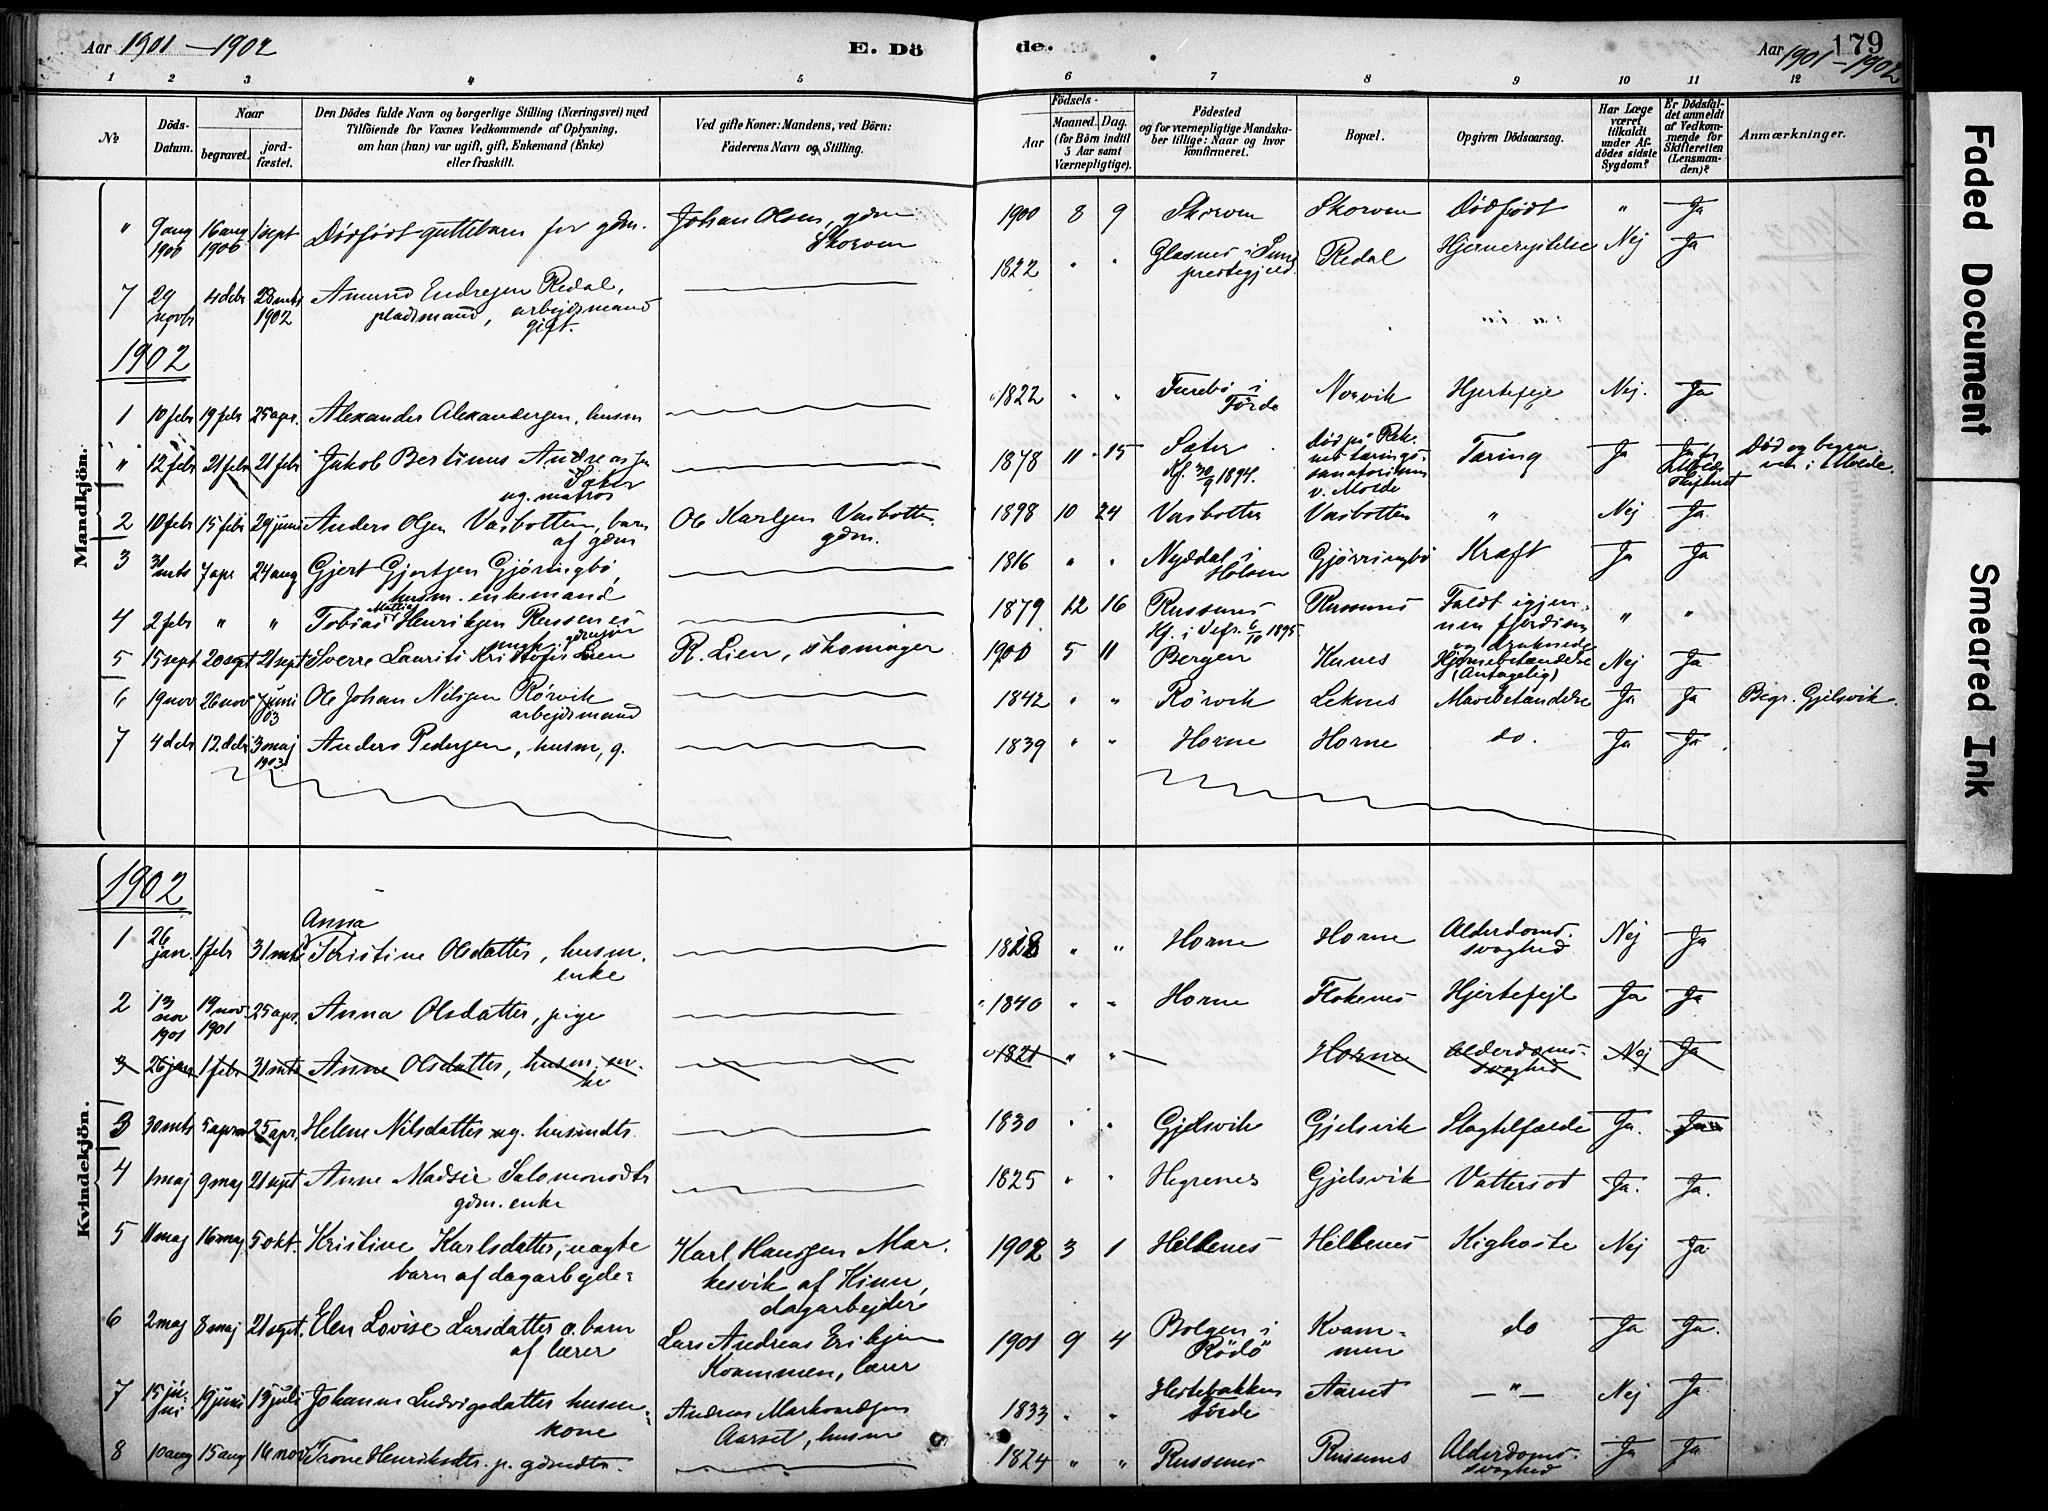 Aar 1901–1902
E. Dö
de.
179
Aar 1901–1902
1 2 3 4 5 6 7 8 9 10 11 12
№
Döds-
Datum.
Naar
begravet.
jord-
fæstet.
Den Dödes fulde Navn og borgerlige Stilling (Næringsvei) med
Tilföiende for Voxnes Vedkommende af Oplysning,
om han (hun) var ugift, gift, Enkemand (Enke)
eller fraskilt.
Ved gifte Koner: Mandens, ved Börn:
Faderens Navn og Stilling.
Födsels-
Aar
Maaned. Dag.
(for Börn indtil
5 Aar samt
Værnepligtige).
Födested
og for værnepligtige Mandska-
ber tillige: Naar og hvor
konfirmeret.
Bopæl.
Opgiven Dödsaarsag.
Har Læge
været
tilkaldt
under Af-
dödes sidste
Sygdom?
Er Dödsfal-
det anmeldt
af Vedkom-
mende for
Skifteretten
(Lensman-
den)?
Anmærkninger.
Mandkjön.
" 9 aug 1900 16 aug 1900 1 sept Dødfødt guttebarn for gdm. Johan Olsen, gdm Skorven 1900 8 9 Skorven Skorven Dødfødt " Ja
7 29 novbr 4 debr 28 mts 1902 Amund Endresen Redal, pladsmand, arbejdsmand gift. 1822 " " Glasnes i Sund prestegjeld Redal Nej Ja
1902
1 10 febr 19 febr 25 apr. Alexander Alexandersen, husm 1822 " " Furebø i Førde Norvik Hjertefeje Nej. Ja
" 12 febr 21 febr 21 febr Jakob Bertinus Andreassen Sæter ug. matros 1878 11 15 Sæter Kf. 30/9 1894. Død på Rek-
nes tærings-
sanatorium
v. Molde Tæring Ja Død og begra-
vet i Molde.
2 10 febr 15 febr 29 juni Anders Olsen Vasbotten, barn af gdm Ole Karlsen Vasbotten gdm. 1898 10 24 Vasbotten Vasbotten " Nej Ja
3 31 mts 7 apr 24 aug Gjert Gjertsen Gjøringbø, husm. enkemand 1816 " " Nyddal i Holsen Gjørringbø Kræft Ja Ja
4 2 febr " " Tobias Mathias Henriksen Russenes 1879 12 16 Russenes Kf. i Vefr. 6/10 1895 Russenes Faldt igjen-
nem fjordisen
og druknede " "
5 15 sept 20 sept 21 sept Sverre Laurits Kristofer Lien R. Lien, skomager 1900 5 11 Bergen Kunes Hjernebetændelse (Antagelig) Nej Ja
6 19 nov 26 nov 7 juni 03 Ole Johan Nilsen Rørvik arbejdsmand 1842 " " Rørvik Leknes Mavebetændelse Ja Ja Begr. Gjelsvik.
7 4 debr 12 debr 3 maj 1903 Anders Pedersen, husm, g. 1839 " " Horne Horne do. Ja Ja
Kvindekjön.
1902
1 26 jan. 1 febr 31 mts Anna Kristine Olsdatter, husm. enke 1828 " " Horne Horne Alderdoms-
svaghed Nej Ja
2 13 nov 1901 19 nov 1901 25 apr. Anna Olsdatter, pige 1840 " " Horne Flokenes Hjertefejl Ja Ja
3 26 jan 1 febr 31 mts Anne Olsdatter, husm. en-
ke 1821 " " Horne Alderdoms-
svaghed Nej Ja
3 30 mts 5 april 25 apr. Helene Nilsdatter ug. husmdtr. 1830 " " Gjelsvik Gjelsvik Slagtilfælde Ja. Ja
4 1 maj 9 maj 21 sept Anne Madsie Salomonsdtr gdm. enke 1825 " " Hegrenes Gjelsvik Vattersot Ja. Ja.
5 11 maj 16 maj 5 okt. Kristine Karlsdatter, uægte
barn af dagarbejder Karl Hanssen Mar-
kesvik af Kinn,
dagarbejder 1902 3 1 Hellenes Hellenes Kighoste Nej Ja
6 2 maj 8 maj 21 sept. Elen Lovise Larsdatter æ. barn af lærer Lars Andreas Eriksen
Kvammen, lærer 1901 9 4 Bolgen i Rødø Kvam-
men do Ja Ja.
7 15 ju-
ni 19 juni 13 juli Johanne Ludvigsdatter husm-
kone Andreas Markvardsen
Aarset, husm 1833 " " Hestebakken Førde Aarset — " — Nej Ja
8 10 aug 15 aug 16 nov Trone Henriksdtr. p. gdmdtr. 1824 " " Russenes Russenes Alderdoms-
svaghed Ja Ja
Faded Document
Smeared Ink